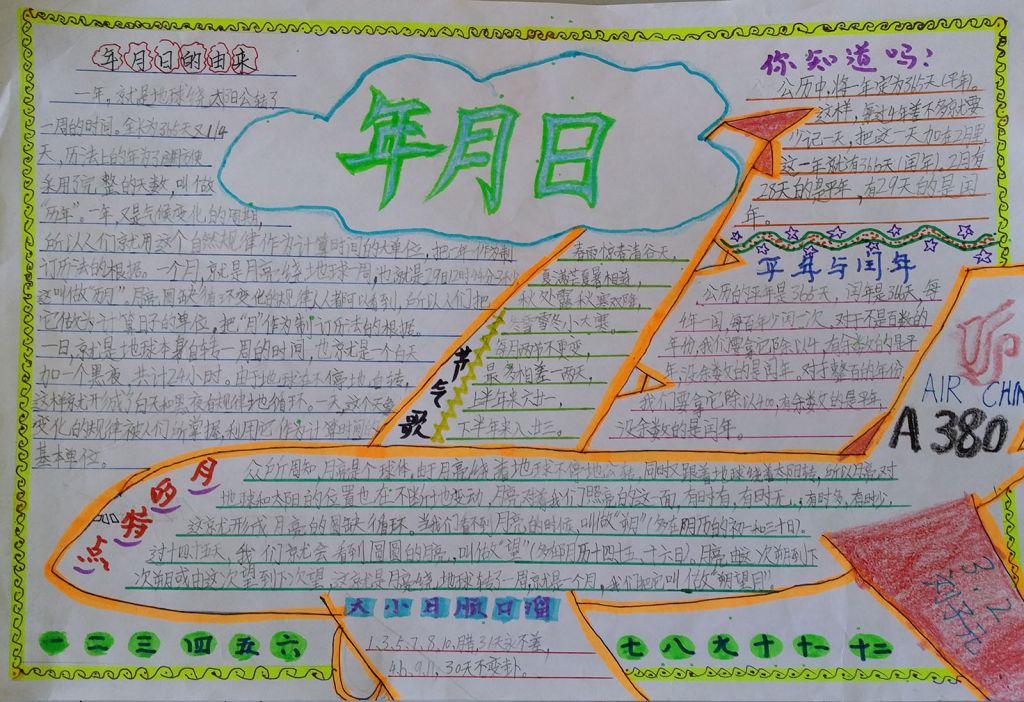 年月日的由来
一年,就是地球绕太阳公转了
一周的时间。全长为365天又1/4
天,历法上的年为了方便
采用了完整的天数,叫做
“历年”。一年又是气候变化的周期
所以人们就用这个自然规律作为计算时间的大单位,把一年作为制
订历法的根据。一个月,就是月亮绕地球一周,也就是29日12时44分3秒,
这叫做“朔月”,月亮圆缺循环变化的规律人人都可以看到,所以人们把
它做为计算日子的单位,把“月”作为制订历法的根据。
一日,就是地球本身自转一周的时间,也就是一个白天
加一个黑夜,共计24小时。由于地球在不停地自转,
这样就形成了白天和黑夜有规律地循环,一天,这个天象
变化的规律被人们所掌握,利用它作为计算时间的
基本单位。
年月日
你知道吗?
公历中,将一年定为365天(平年)。
这样,每过4年差不多就要
少记一天,把这一天加在2月里,
这一年就有366天(闰年),2月有
28天的是平年,有29天的是闰
年。
平年与闰年
公历的平年是365天,闰年是366天,每
4年一闰,每百年少闰一次,对于不是百数的
年份,我们要拿它除以4,有余数的是平
年,没余数的是闰年。对于整百的年份,
我们要拿它除以400,有余数的是平年,
没余数的是闰年。
节气歌
春雨惊春清谷天,
夏满芒夏暑相连,
秋处露秋寒霜降,
冬雪雪冬小大寒。
每月两节不更变,
最多相差一两天,
上半年来六廿一,
下半年来八廿三。
AIR CHIN
A380
月四特点
众所周知,月亮是个球体,由于月亮绕着地球不停地公转,同时又跟着地球绕着太阳转,所以月亮对
地球和太阳的位置也在不断地变动,月亮对着我们照亮的这一面,有时有,有时无,有时多,有时少,
这就形成月亮的圆缺循环。当我们看不到月亮的时候,叫做“朔”(多在阴历的初一和三十日)。
过十四、五天,我们就会看到圆圆的月亮,叫做“望”(多在阴历十四、十五、十六日)。月亮由这次朔到下
次朔或由这次望到下次望,这就是月亮绕地球转了一周,就是一个月,我们把它叫做“朔望月”。
大小月顺口溜
1、3、5、7、8、10、腊,31天永不差,
4、6、9、11,30天不变卦。
一 二 三 四 五 六
七 八 九 十 十一 十二
3.2